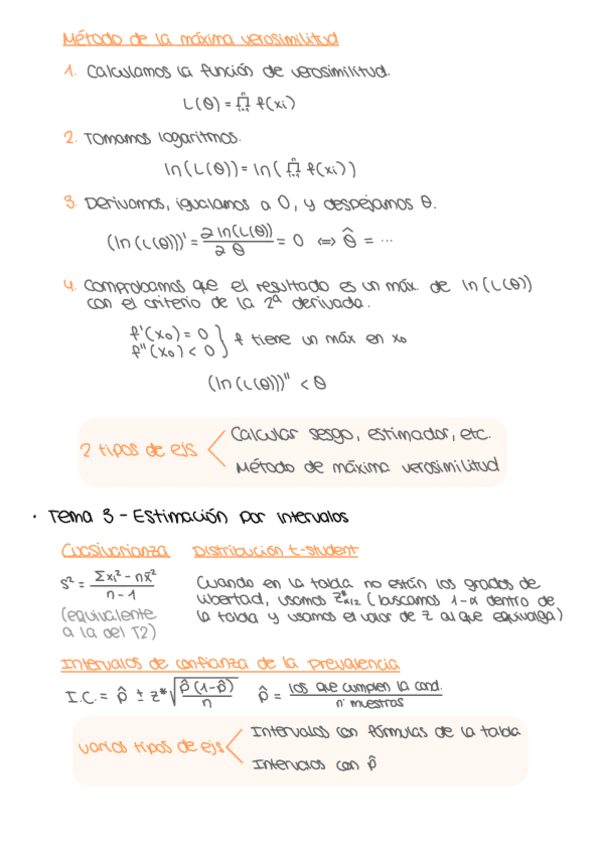 Método de la máxima verosimilitud
1. Calculamos la función de verosimilitud.
L(θ) = ∏ⁿᵢ₌₁ f(xi)
2. Tomamos logaritmos.
ln(L(θ)) = ln( ∏ⁿᵢ₌₁ f(xi))
3. Derivamos, igualamos a 0, y despejamos θ.
(ln(L(θ)))' = ∂ ln(L(θ)) / ∂ θ = 0 ⇔ θ̂ = ...
4. Comprobamos que el resultado es un máx. de ln(L(θ))
con el criterio de la 2ª derivada.
f'(x₀) = 0
f''(x₀) < 0 } f tiene un máx en x₀
(ln(L(θ)))'' < θ
2 tipos de ejs
Calcular sesgo, estimador, etc.
Método de máxima verosimilitud
· Tema 3 - Estimación por intervalos
Cuasivarianza Distribución t-student
S² = Σxi² - nx̄² / n - 1
(equivalente
a la del T2)
Cuando en la tabla no están los grados de
libertad, usamos Z*α/2 (buscamos 1-α dentro de
la tabla y usamos el valor de Z al que equivalga)
Intervalos de confianza de la prevalencia
I.C. = p̂ ± z* √ p̂(1-p̂) / n p̂ = los que cumplen la cond. / nº muestras
varios tipos de ejs
Intervalos con fórmulas de la tabla
Intervalos con p̂